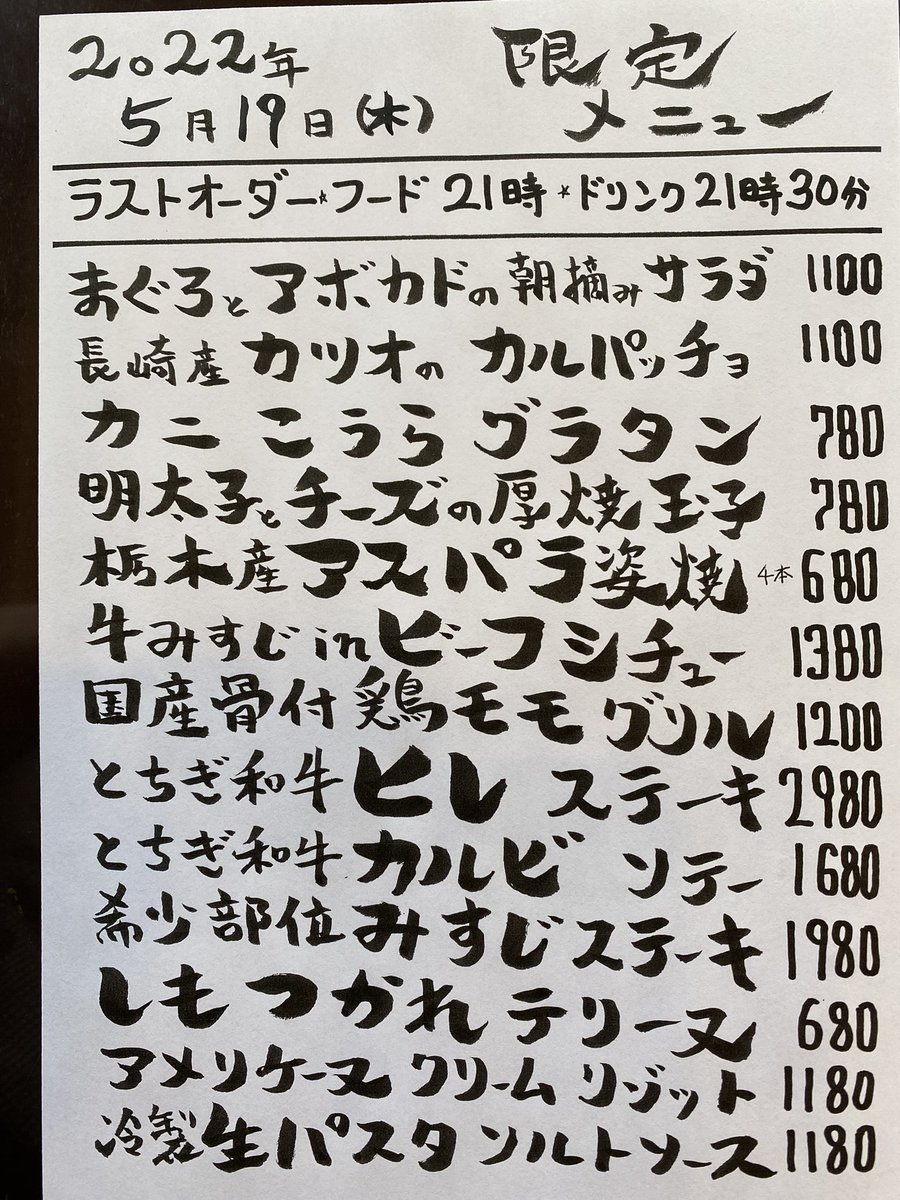 2022年
5月19日(木)
限定
メニュー
ラストオーダー★フード21時★ドリンク21時30分
まぐろとアボカドの朝摘みサラダ 1100
長崎産カツオのカルパッチョ 1100
カニこうらグラタン 780
明太子とチーズの厚焼玉子 780
栃木産アスパラ姿焼 4本 680
牛みすじinビーフシチュー 1380
国産骨付鶏モモグリル 1200
とちぎ和牛ヒレステーキ 2980
とちぎ和牛カルビソテー 1680
希少部位みすじステーキ 1980
しもつかれテリーヌ 680
アメリケーヌクリームリゾット 1180
冷製生パスタソルトソース 1180